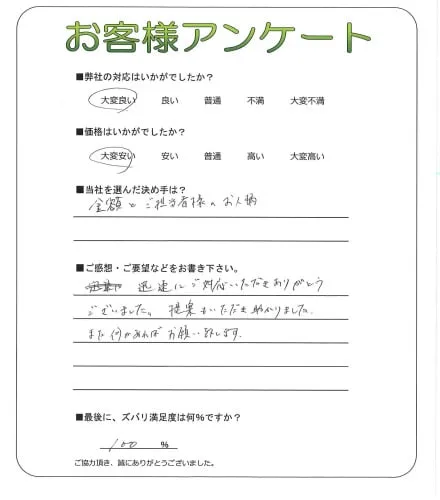 お客様アンケート
■弊社の対応はいかがでしたか？
大変良い 良い 普通 不満 大変不満
■価格はいかがでしたか？
大変安い 安い 普通 高い 大変高い
■当社を選んだ決め手は？
金額とご担当者様のお人柄
■ご感想・ご要望などをお書き下さい。
迅速にご対応いただきありがとう
ございました。提案もいただき助かりました。
また何かあればお願い致します。
■最後に、ズバリ満足度は何%ですか？
100 %
ご協力頂き、誠にありがとうございました。